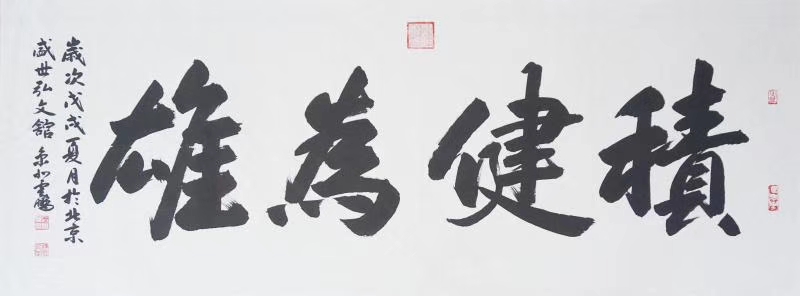 積健為雄
歲次戊戌夏月於北京
盛世弘文館 京北雲鵬